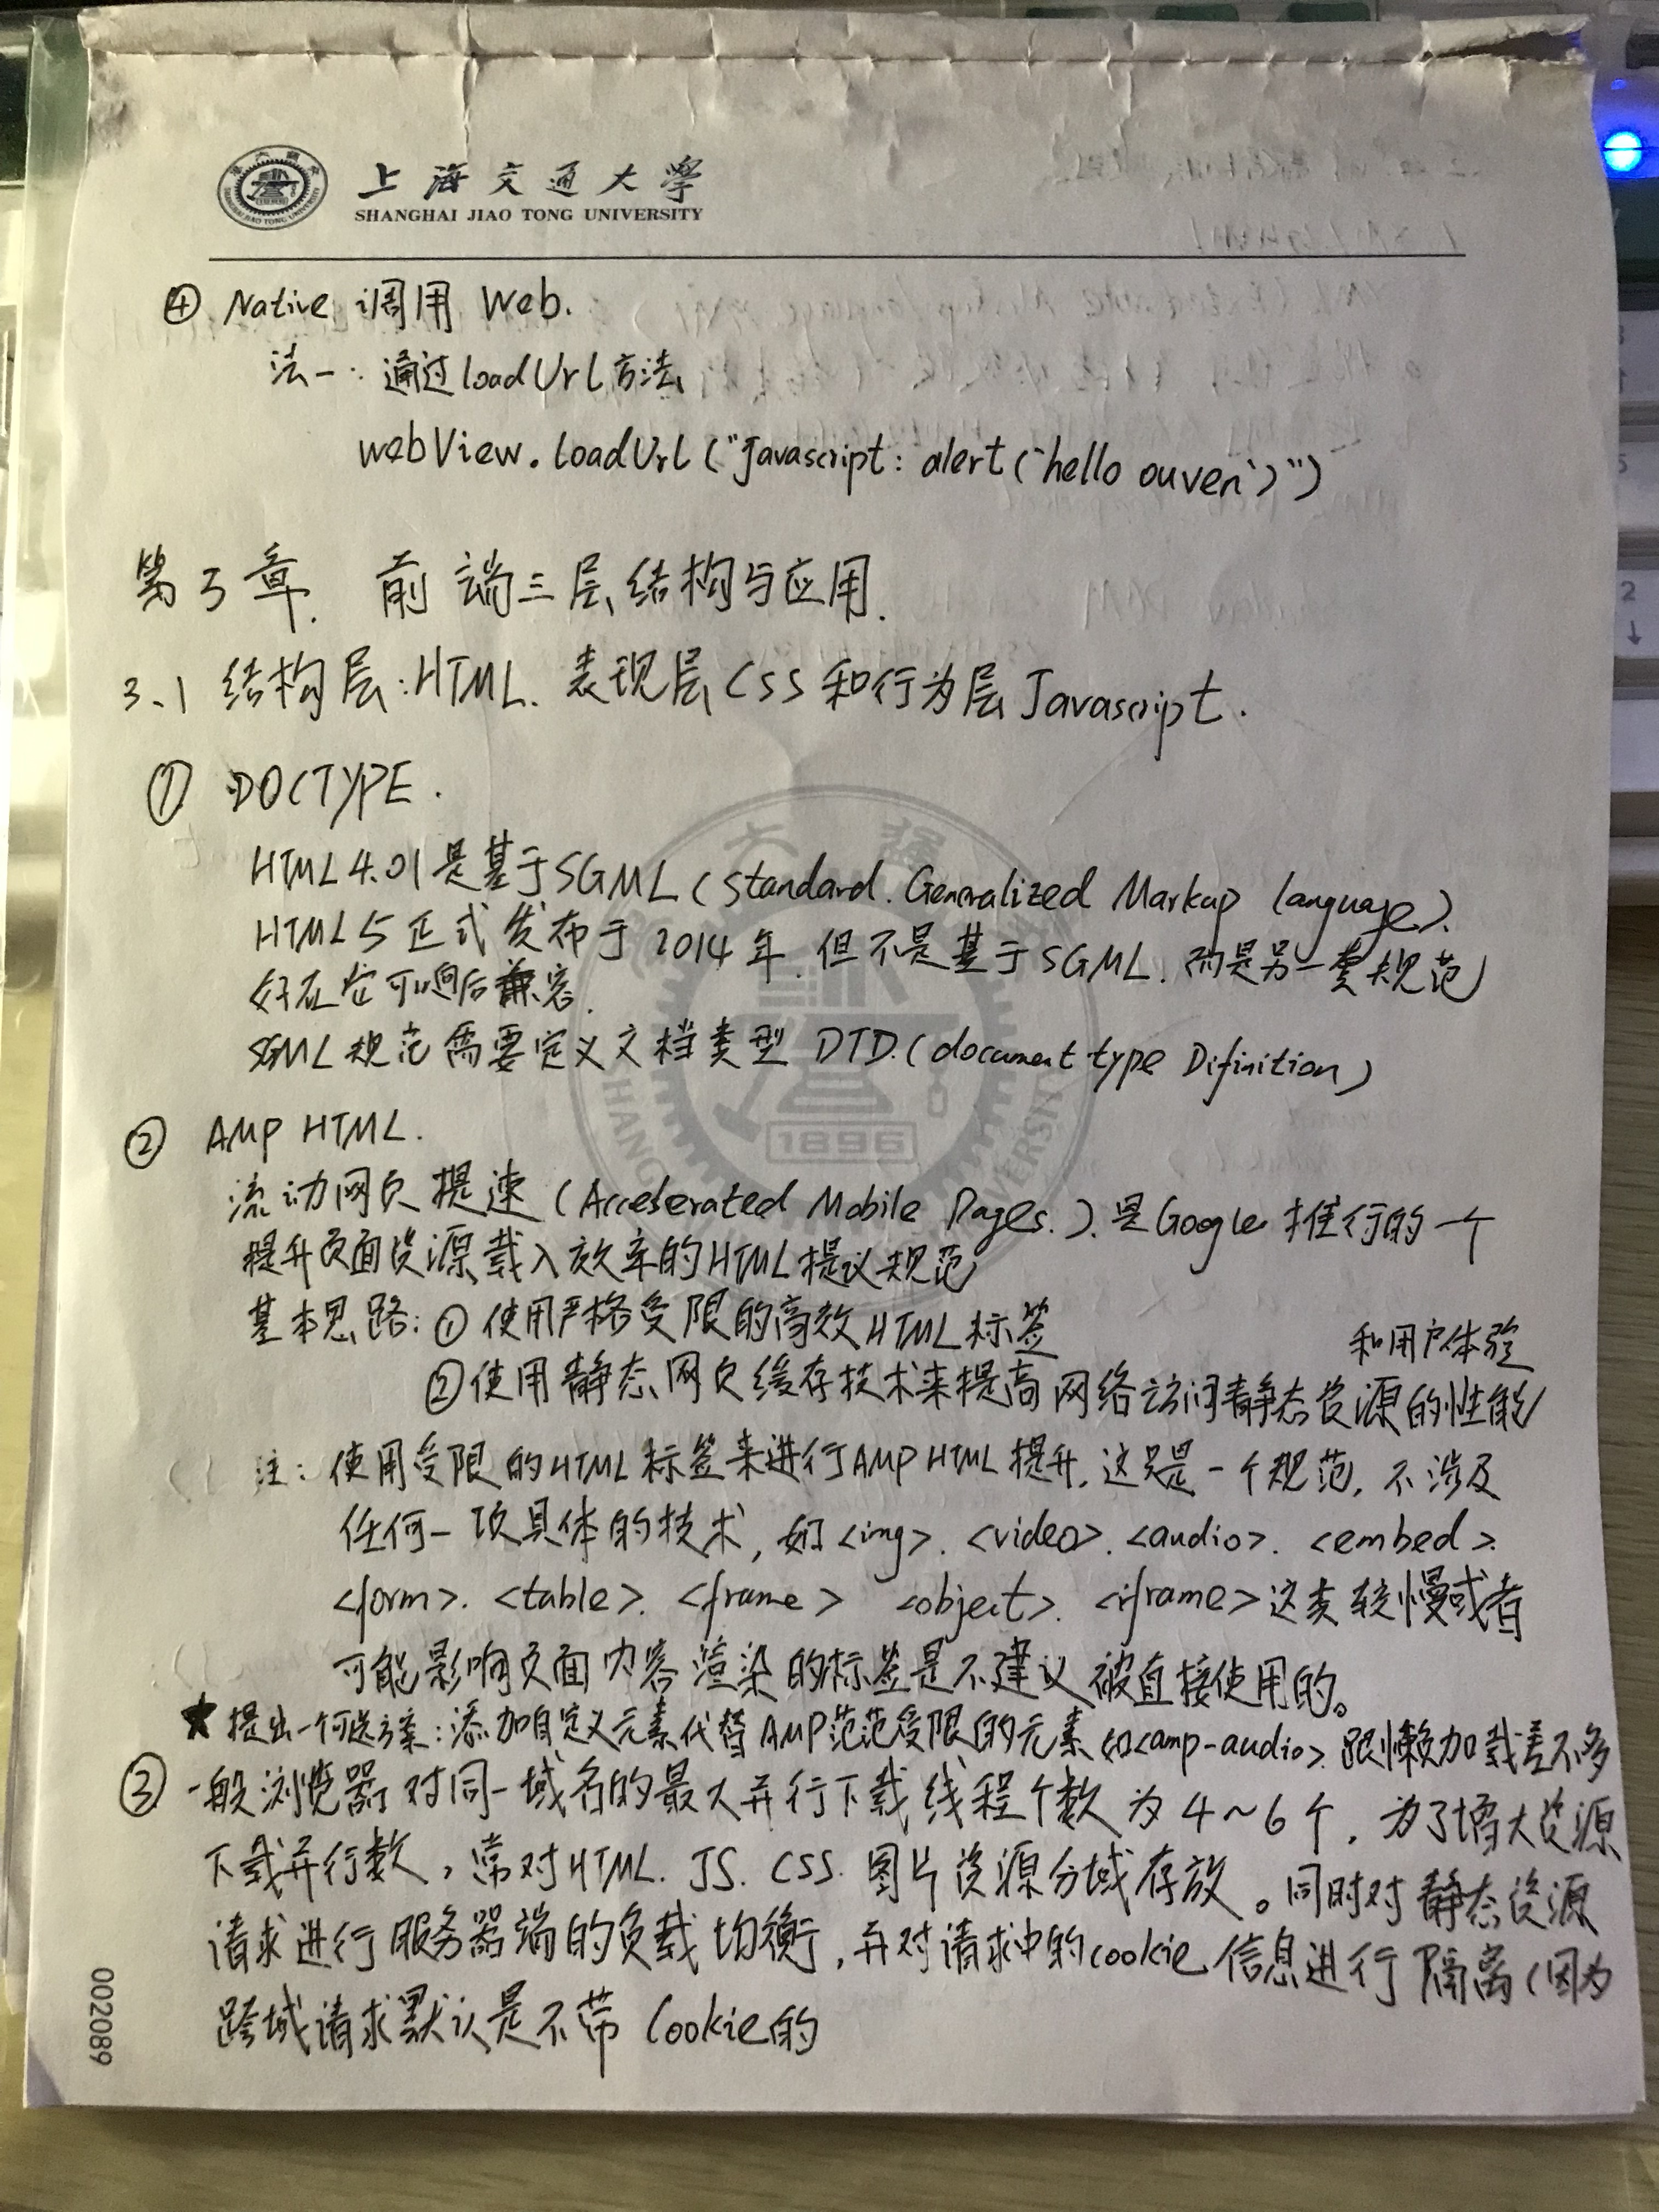 上海交通大學
SHANGHAI JIAO TONG UNIVERSITY
④ Native 调用 Web.
法一: 通过loadUrl方法
webView.loadUrl("Javascript: alert('hello ouven')")
第3章. 前端三层结构与应用.
3.1 结构层:HTML. 表现层CSS和行为层Javascript.
① DOCTYPE.
HTML4.01是基于SGML(Standard Generalized Markup language).
HTML5正式发布于2014年.但不是基于SGML.而是另一套规范
好在它可向后兼容.
SGML规范需要定义文档类型 DTD.(document type Difinition)
1896
② AMP HTML.
流动网页提速(Accelerated Mobile Pages.).是Google推行的一个
提升页面资源载入效率的HTML提议规范
基本思路:①使用严格受限的高效HTML标签
和用户体验
②使用静态网页缓存技术来提高网络访问静态资源的性能
注: 使用受限的HTML标签来进行AMP HTML提升,这只是一个规范,不涉及
任何一项具体的技术,如<img>.<video>.<audio>.<embed>.
<form>.<table>.<frame> <object>.<iframe>这类较慢或者
可能影响页面内容渲染的标签是不建议被直接使用的。
★提出一个可选方案:添加自定义元素代替AMP范范受限的元素如<amp-audio>.跟懒加载差不多
③ 一般浏览器对同一域名的最大并行下载线程个数为4~6个,为了增大资源
下载并行数,常对HTML.JS.CSS.图片资源分域存放。同时对静态资源
请求进行服务器端的负载均衡,并对请求中的cookie信息进行隔离(因为
跨域请求默认是不带Cookie的
002089